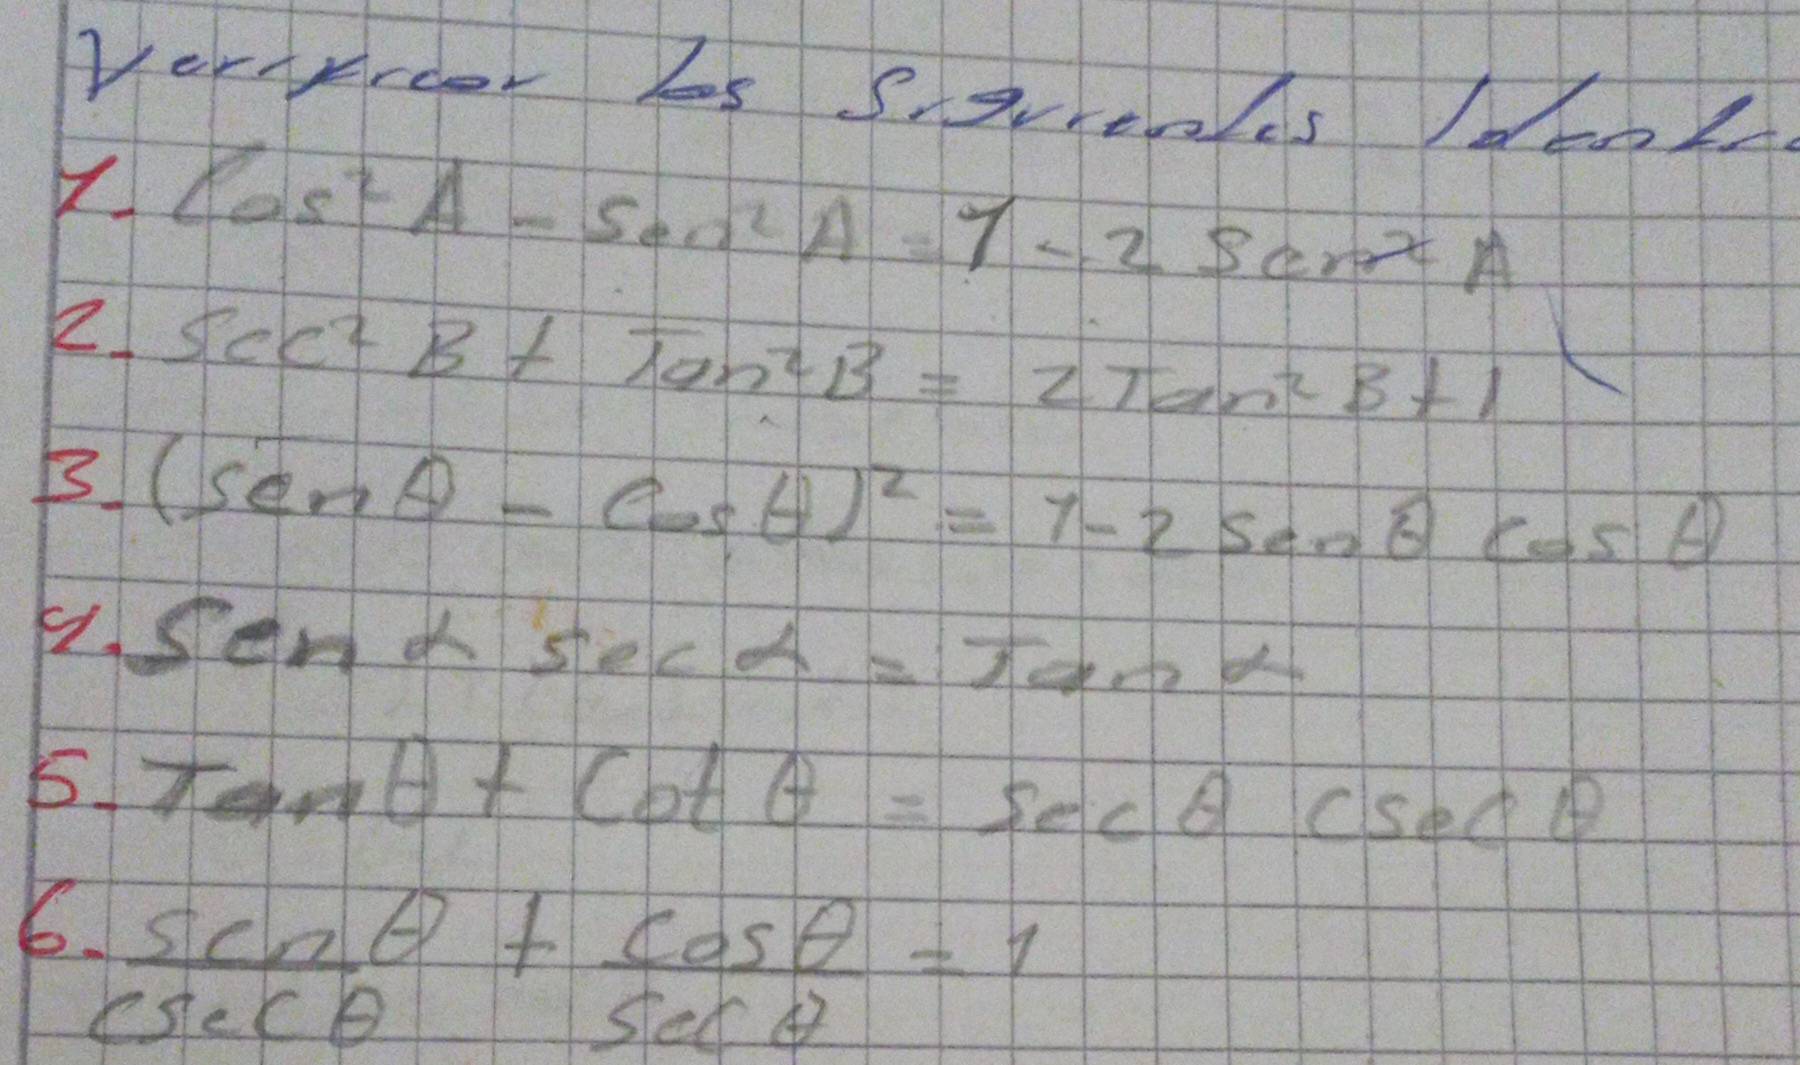 Verificar las Siguientes Identi
1. Cos² A - Sen² A = 1 - 2 Sen² A
2. Sec² B + Tan² B = 2 Tan² B + 1
3. (Sen θ - Cos θ)² = 1 - 2 Sen θ Cos θ
4. Sen α Sec α = Tan α
5. Tan θ + Cot θ = Sec θ Csec θ
6. Sen θ + Cos θ = 1
Csec θ Sec θ